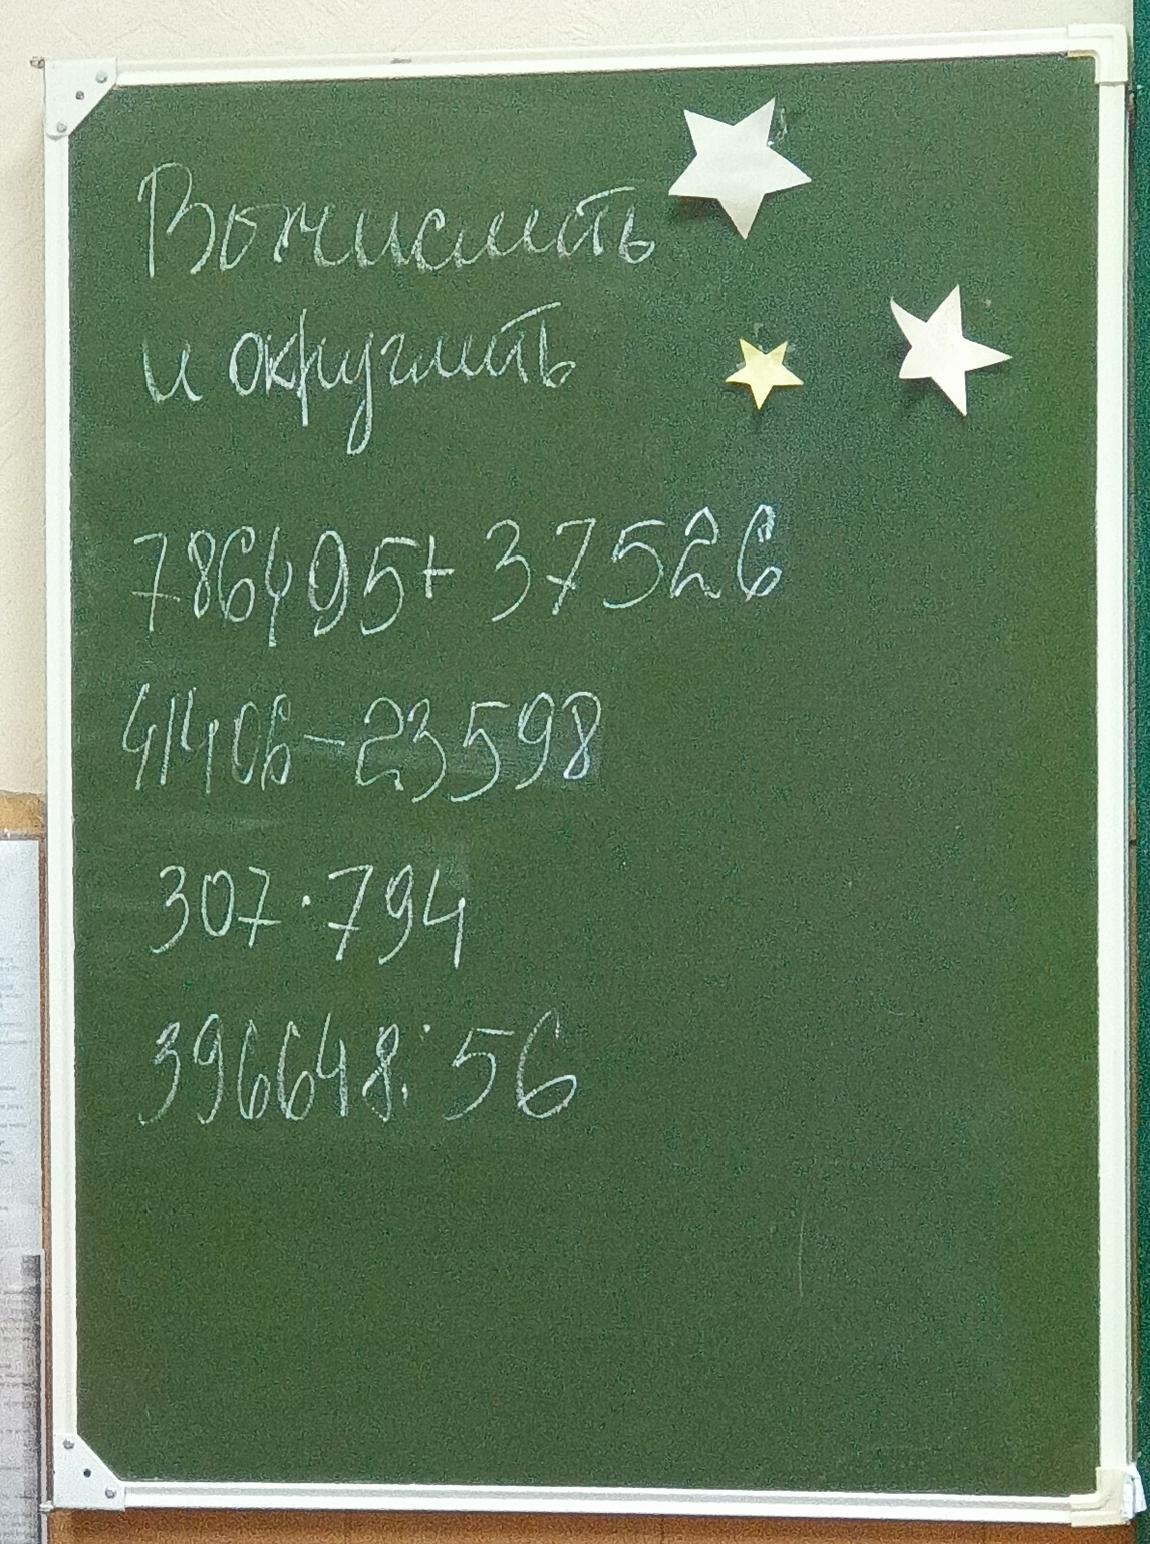 Вычислить
и округлить
786495+ 37526
41406-23598
307·794
396648:56